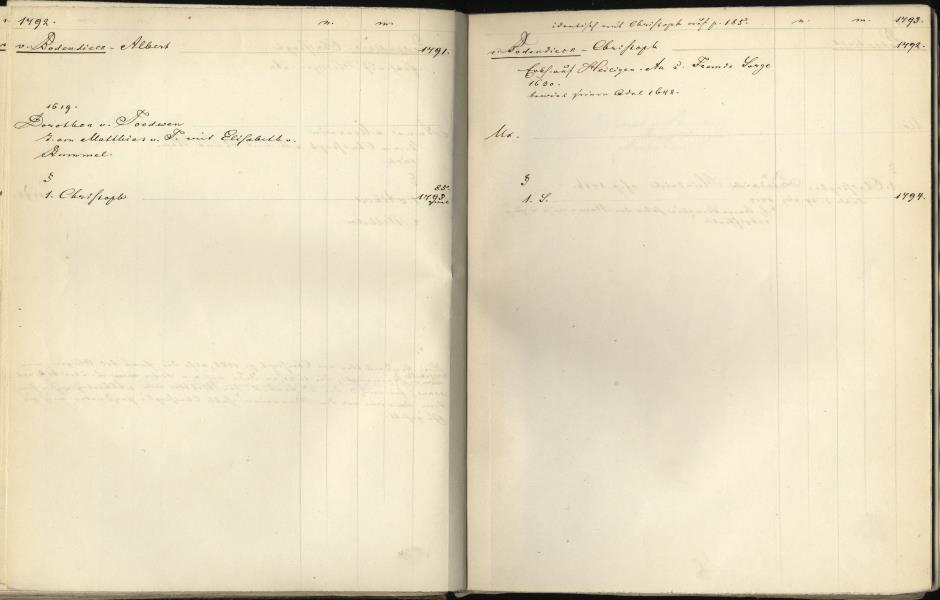 1792. v. m.
v. Bodendieck - Albert 1791.
1619.
Dorothea v. Toedwen
T. von Matthias v. T. mit Elisabeth v.
Rummel.
§
1. Christoph 1793
identisch mit Christoph auf p. 185. v. m. 1793.
v. Bodendieck - Christoph 1792.
Erbh. auf Heiligen-Aa u. Fremde Sorge
1630.
bewies seinen Adel 1642.
Ux.
§
1. S. 1794.